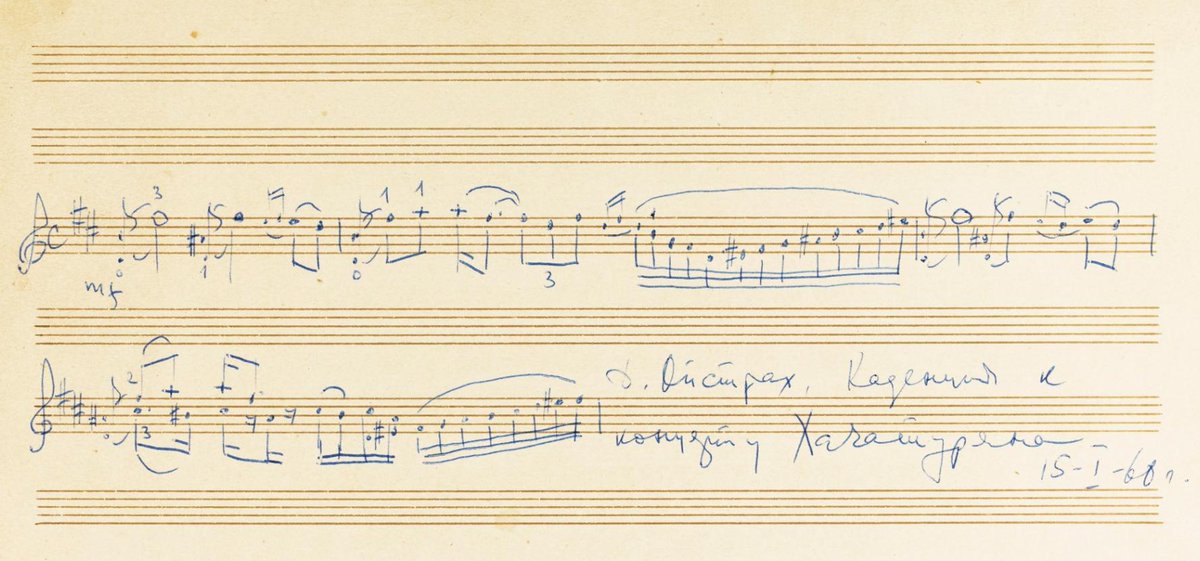 3 1 1
1
0 0
mf
3
2
3
Д. Ойстрах. Каденция к
концерту Хачатуряна –
15-I-60 г.